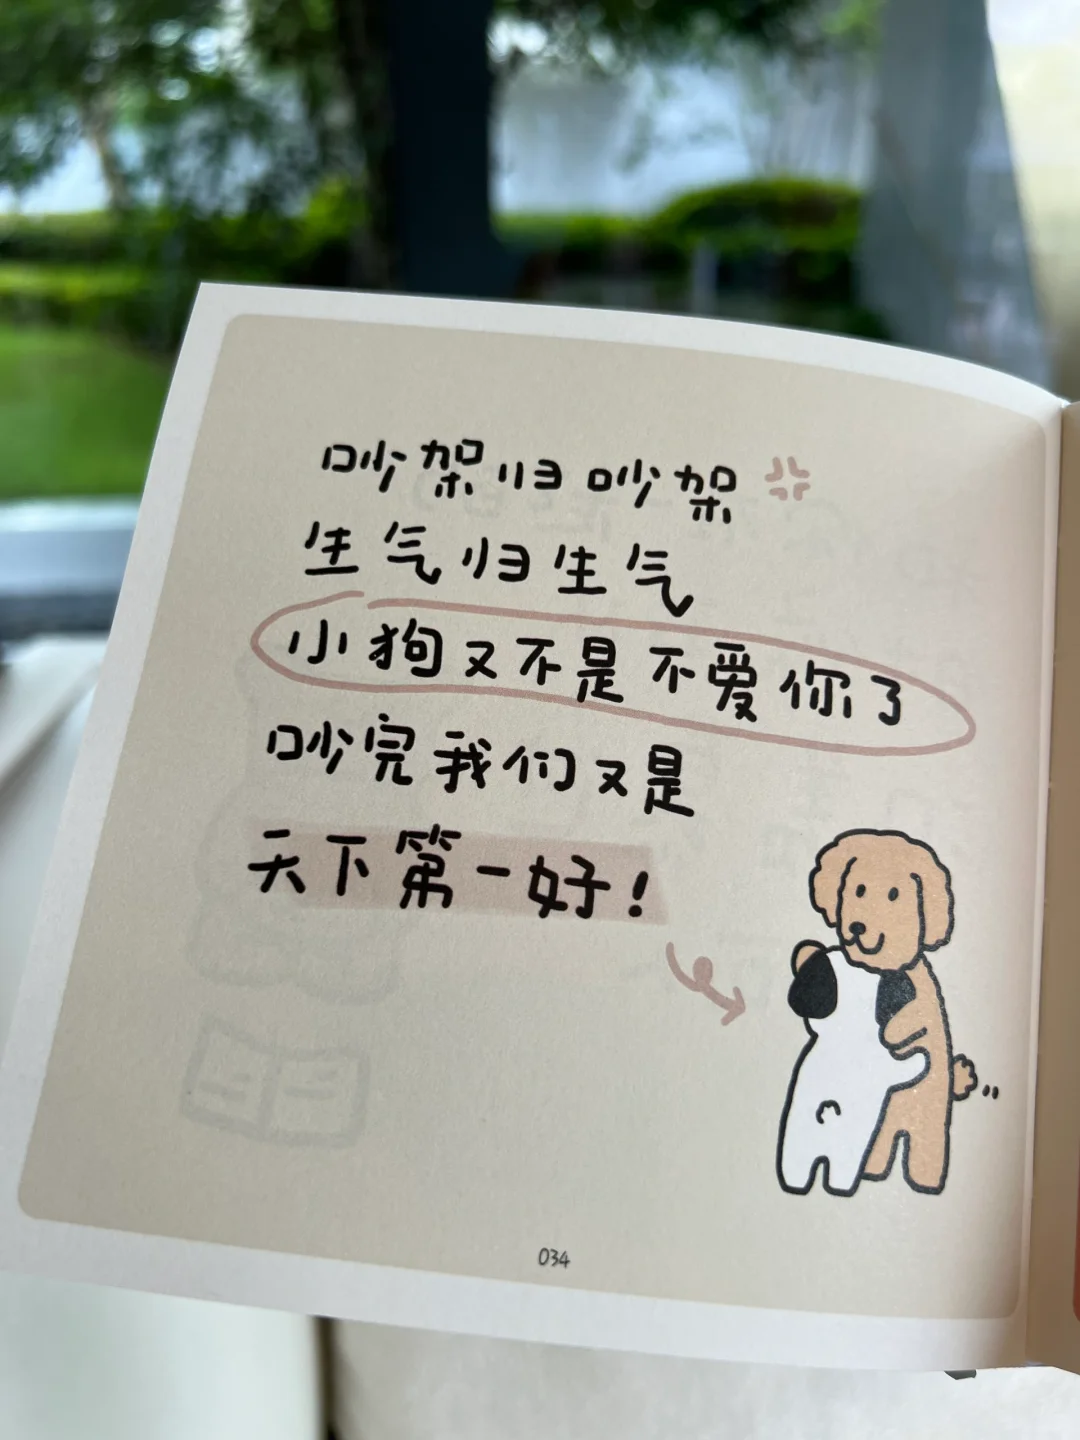 吵架归吵架
生气归生气
小狗又不是不爱你了
吵完我们又是
天下第一好!
034